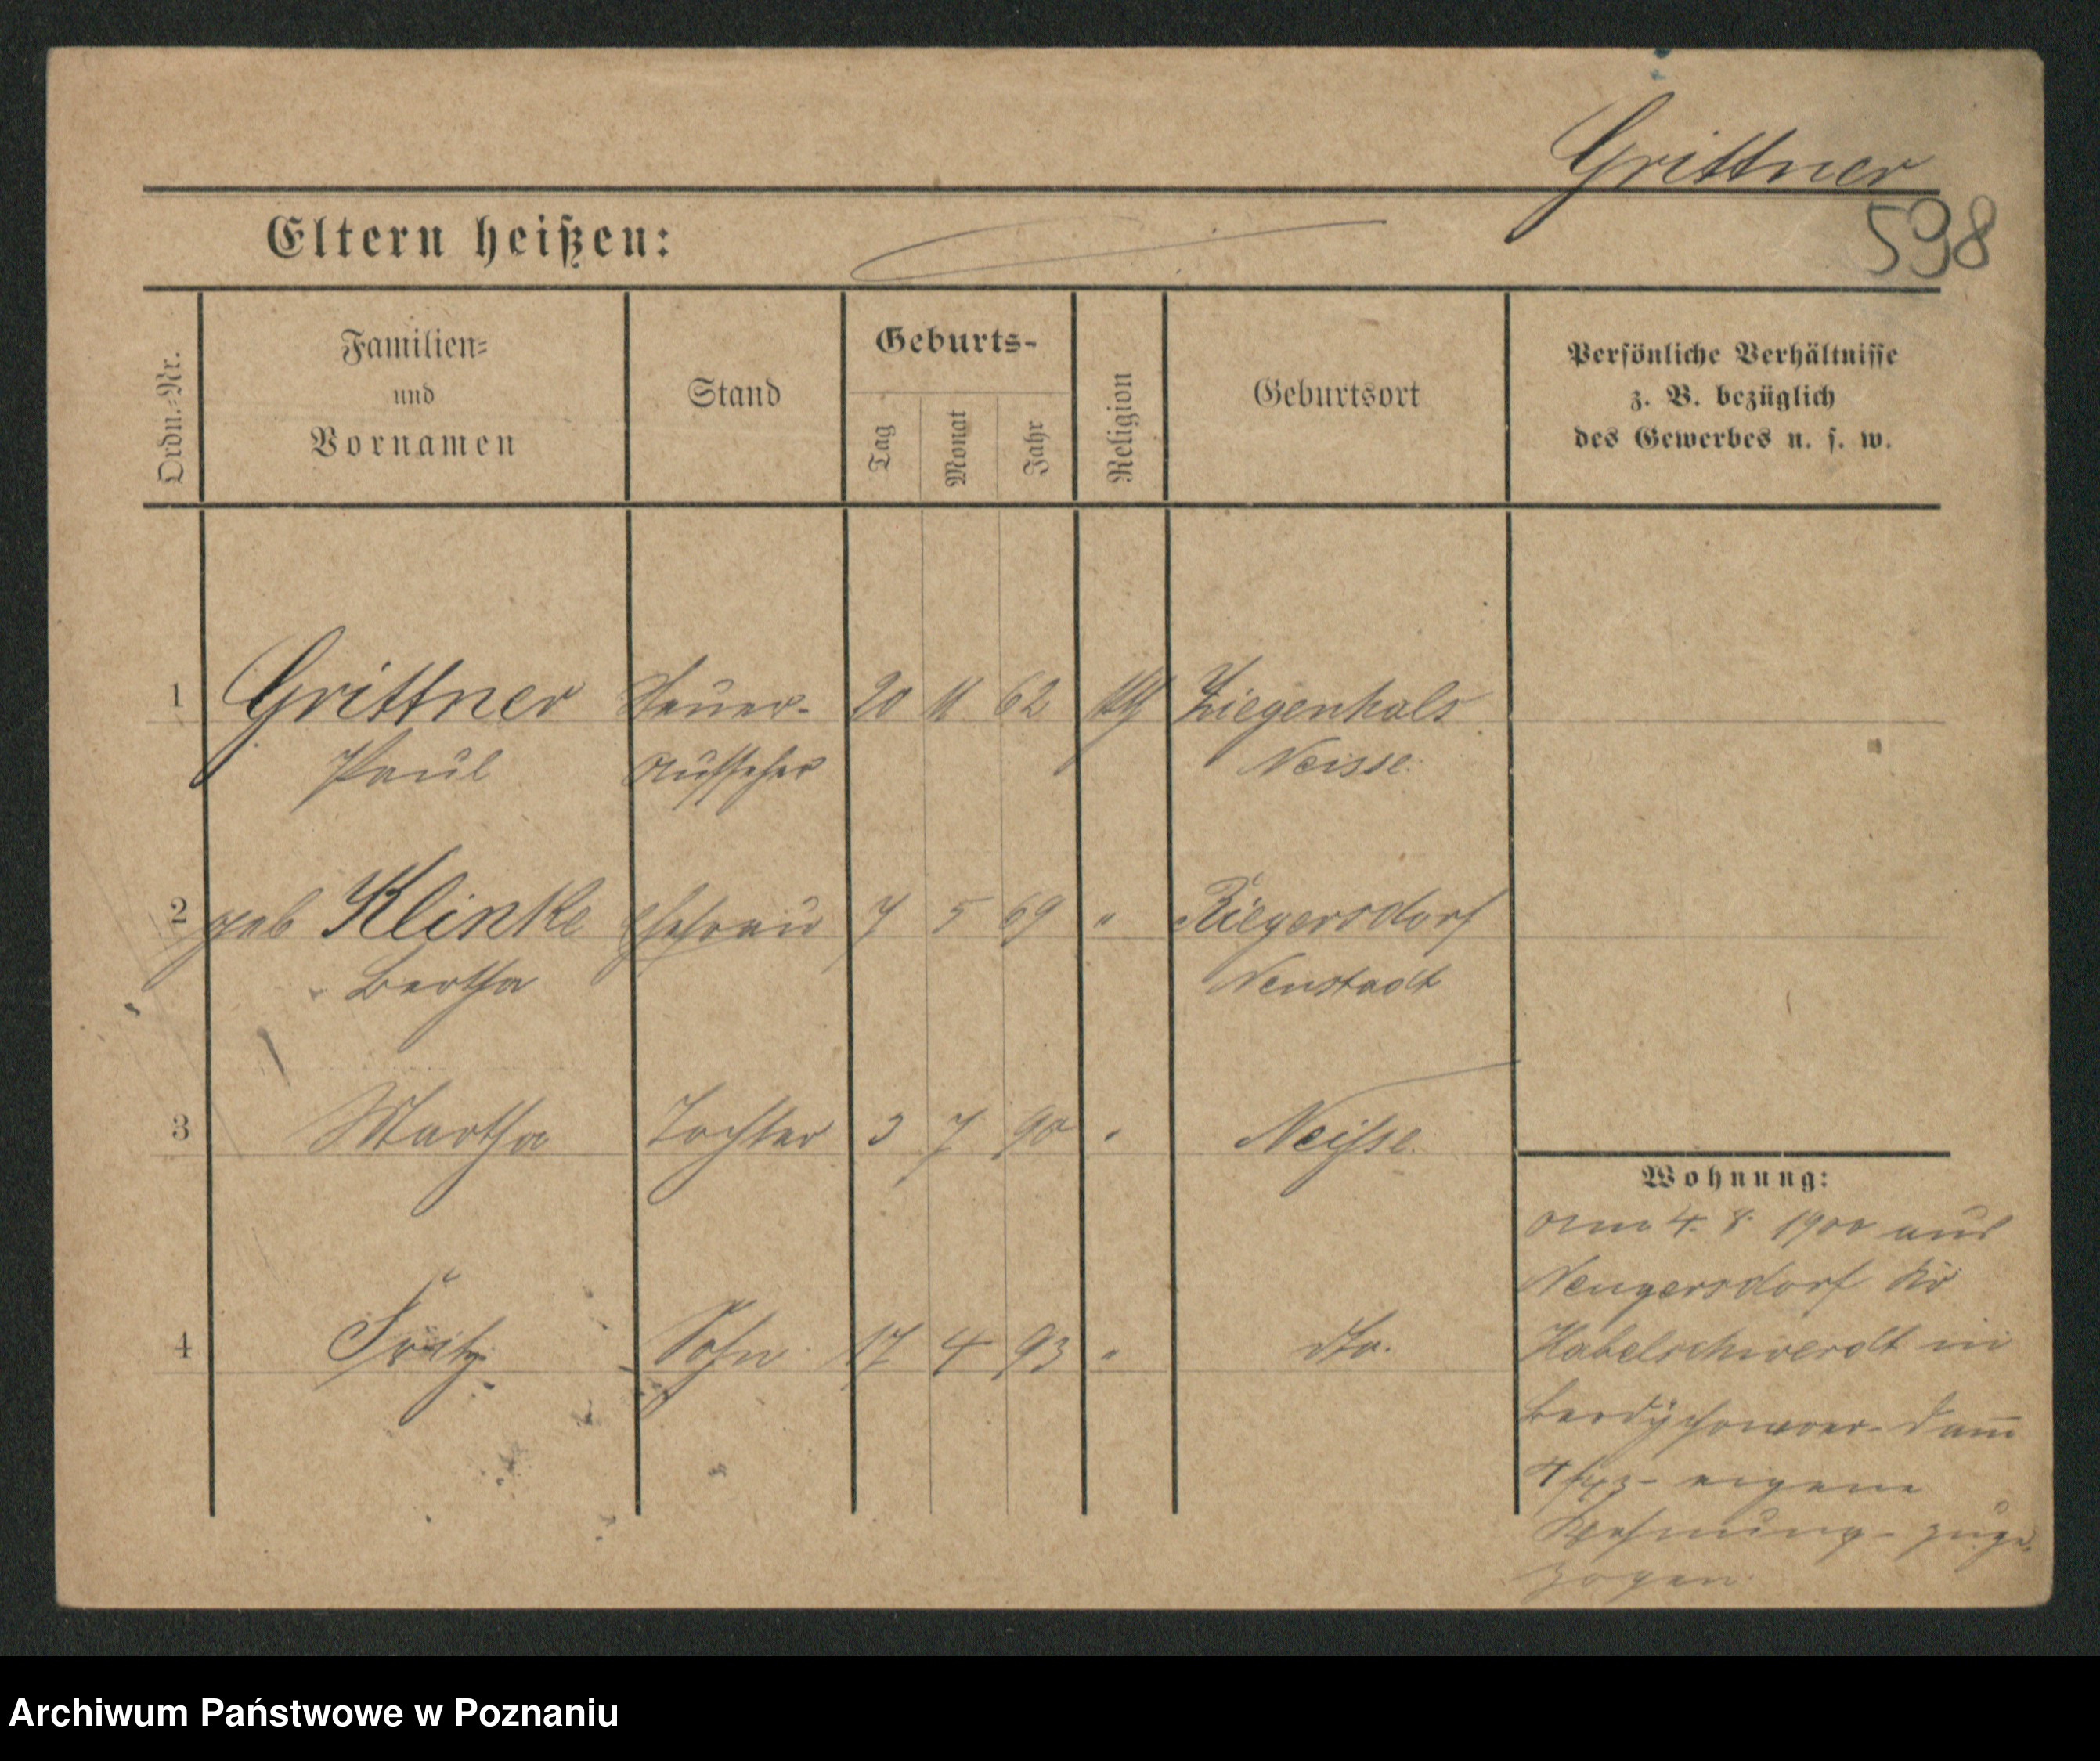 Grittner
598
Eltern heißen:
Ordn.-Nr.
Familien-
und
Vornamen
Stand
Geburts-
Tag
Monat
Jahr
Religion
Geburtsort
Persönliche Verhältnisse
z. B. bezüglich
des Gewerbes u. s. w.
1 Grittner Steuer- 20 11 62 kth Ziegenhals
Paul Aufseher Neisse
2 geb Klinke Ehefrau 7 5 69 " Riegersdorf
Bertha Neustadt
3 Martha Tochter 3 7 90 " Neisse
Wohnung:
am 4. 8. 1900 aus
Nengersdorf Kr
4 Fritz Sohn 17 4 93 " dto.
Habelschwerdt in
Berdychowoer-Dam̅
eigene
Wohnung - zuge-
zogen
Archiwum Państwowe w Poznaniu